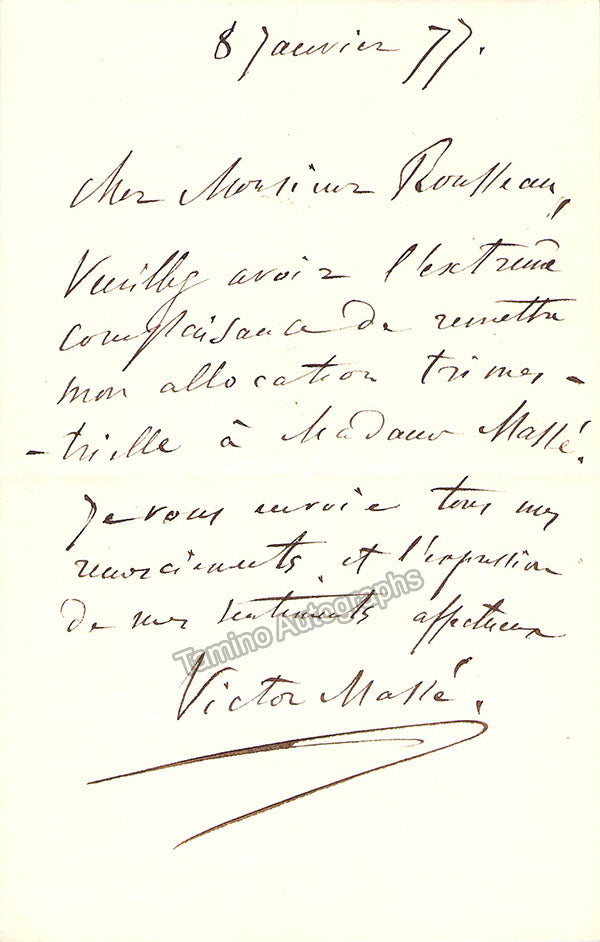 8 Janvier 77.
Cher Monsieur Rousseau,
Veuillez avoir l'extrême
complaisance de remettre
mon allocation trimes-
-trielle à Madame Massé.
Je vous envoie tous mes
remerciements, et l'expression
de mes sentiments affectueux
Tamino Autographs
Victor Massé.